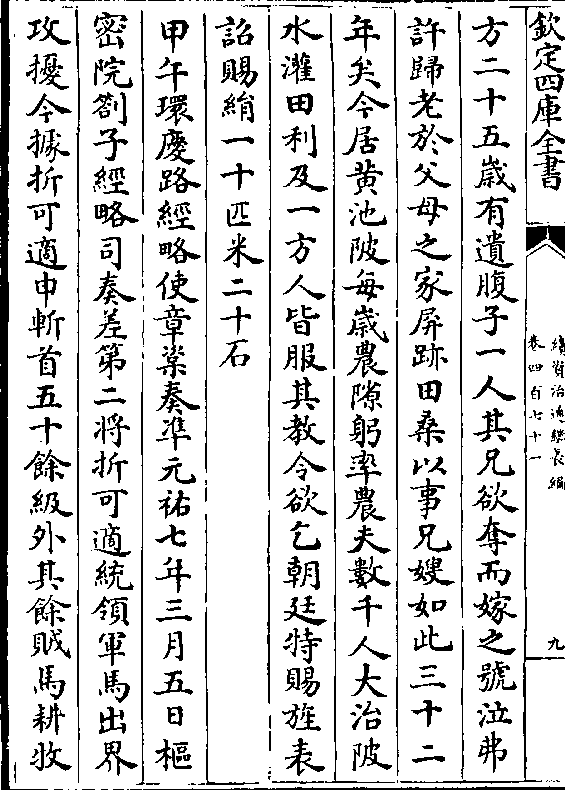 欽定四庫全書
續資治通鑑長編
卷四百七十一
九
方二十五歳有遺腹子一人其兄欲奪而嫁之號泣弗
許歸老於父母之家屏跡田桑以事兄嫂如此三十二
年矣今居黄池陂每歳農隙躬率農夫數千人大治陂
水灌田利及一方人皆服其教令欲乞朝廷特賜旌表
詔賜絹一十匹米二十石
甲午環慶路經略使章楶奏准元祐七年三月五日樞
密院劄子經略司奏差第二將折可適統領軍馬出界
攻擾今據折可適申斬首五十餘級外其餘賊馬耕牧